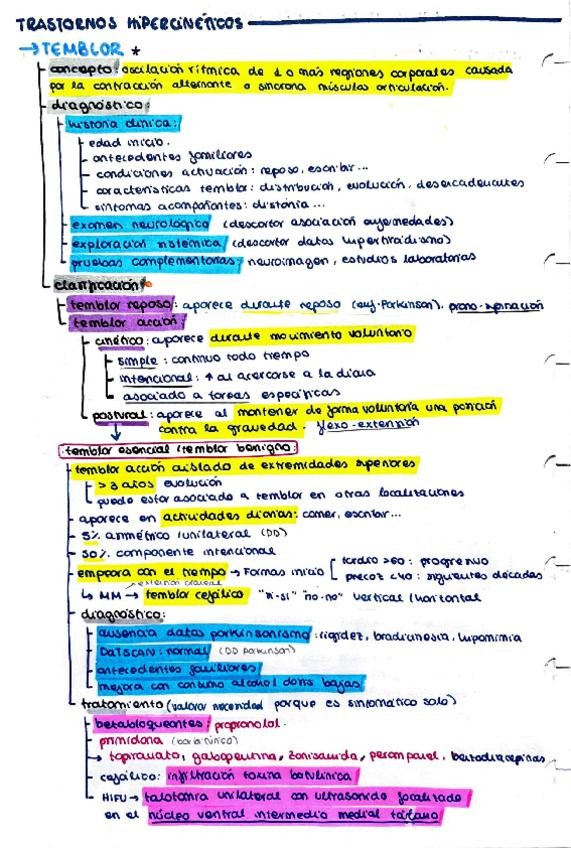 TRASTORNOS HIPERCINÉTICOS
→ TEMBLOR *
concepto: oscilación rítmica de 1 o más regiones corporales causada
por la contracción alternante o síncrona músculos articulación.
diagnóstico:
historia clínica:
edad inicio.
antecedentes familiares
condiciones activación: reposo, escribir...
características temblor: distribución, evolución, desencadenantes
síntomas acompañantes: distonía...
examen neurológico (descartar asociación enfermedades)
exploración sistémica (descartar datos hipertiroidismo)
pruebas complementarias: neuroimagen, estudios laboratorios
clasificación:
temblor reposo: aparece durante reposo (enf. Parkinson). prono-supinación
temblor acción:
cinético: aparece durante movimiento voluntario
simple: continuo todo tiempo
intencional: ↑ al acercarse a la diana
asociado a tareas específicas
postural: aparece al mantener de forma voluntaria una posición
contra la gravedad. flexo-extensión
temblor esencial / temblor benigno:
temblor acción aislado de extremidades superiores
> 3 años evolución
puede estar asociado a temblor en otras localizaciones
aparece en actividades diarias: comer, escribir...
5% asimétrico/unilateral (DD)
50% componente intencional
empeora con el tiempo → Formas inicio
tardío >60: progresivo
precoz <40: siguientes décadas
↳ MM → temblor cefálico "sí-sí" "no-no" vertical/horizontal
diagnóstico:
ausencia datos parkinsonismo: rigidez, bradicinesia, hipomimia
DaTSCAN: normal (DD parkinson)
antecedentes familiares
mejora con consumo alcohol dosis bajas
tratamiento (valorar necesidad porque es sintomático solo)
betabloqueantes: propranolol.
primidona (barbitúrico)
topiramato, gabapentina, zonisamida, perampanel, benzodiacepinas
cefálico: infiltración toxina botulínica
HIFU → talotomía unilateral con ultrasonido focalizado
en el núcleo ventral intermedio medial tálamo